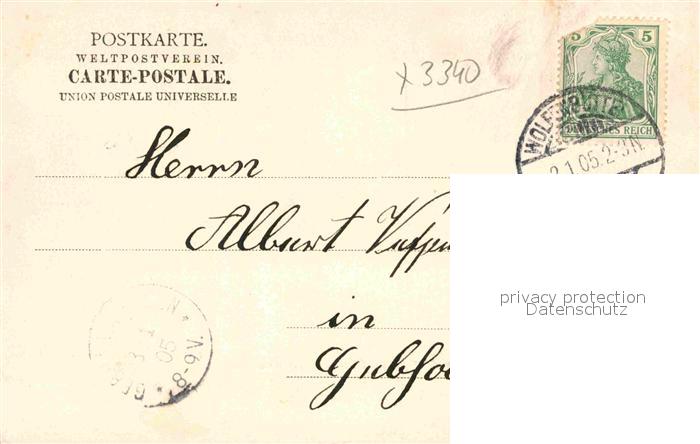 POSTKARTE.
WELTPOSTVEREIN.
CARTE-POSTALE.
UNION POSTALE UNIVERSELLE
x 3340
5 5
DEUTSCHES REICH
2.1.05.2-3N.
Herrn
Albert
in
privacy protection
Datenschutz
05
8-9V.